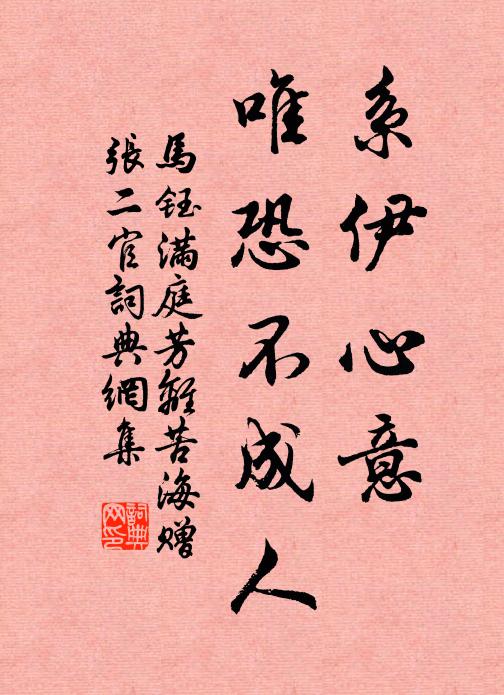 系伊心意
唯恐不成人
馬鈺滿庭芳離苦海贈
張二官詞典網集
詞典
网印